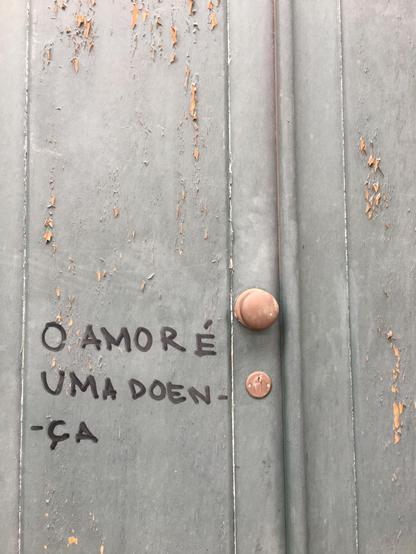 O AMOR É
UMA DOEN-
-ÇA